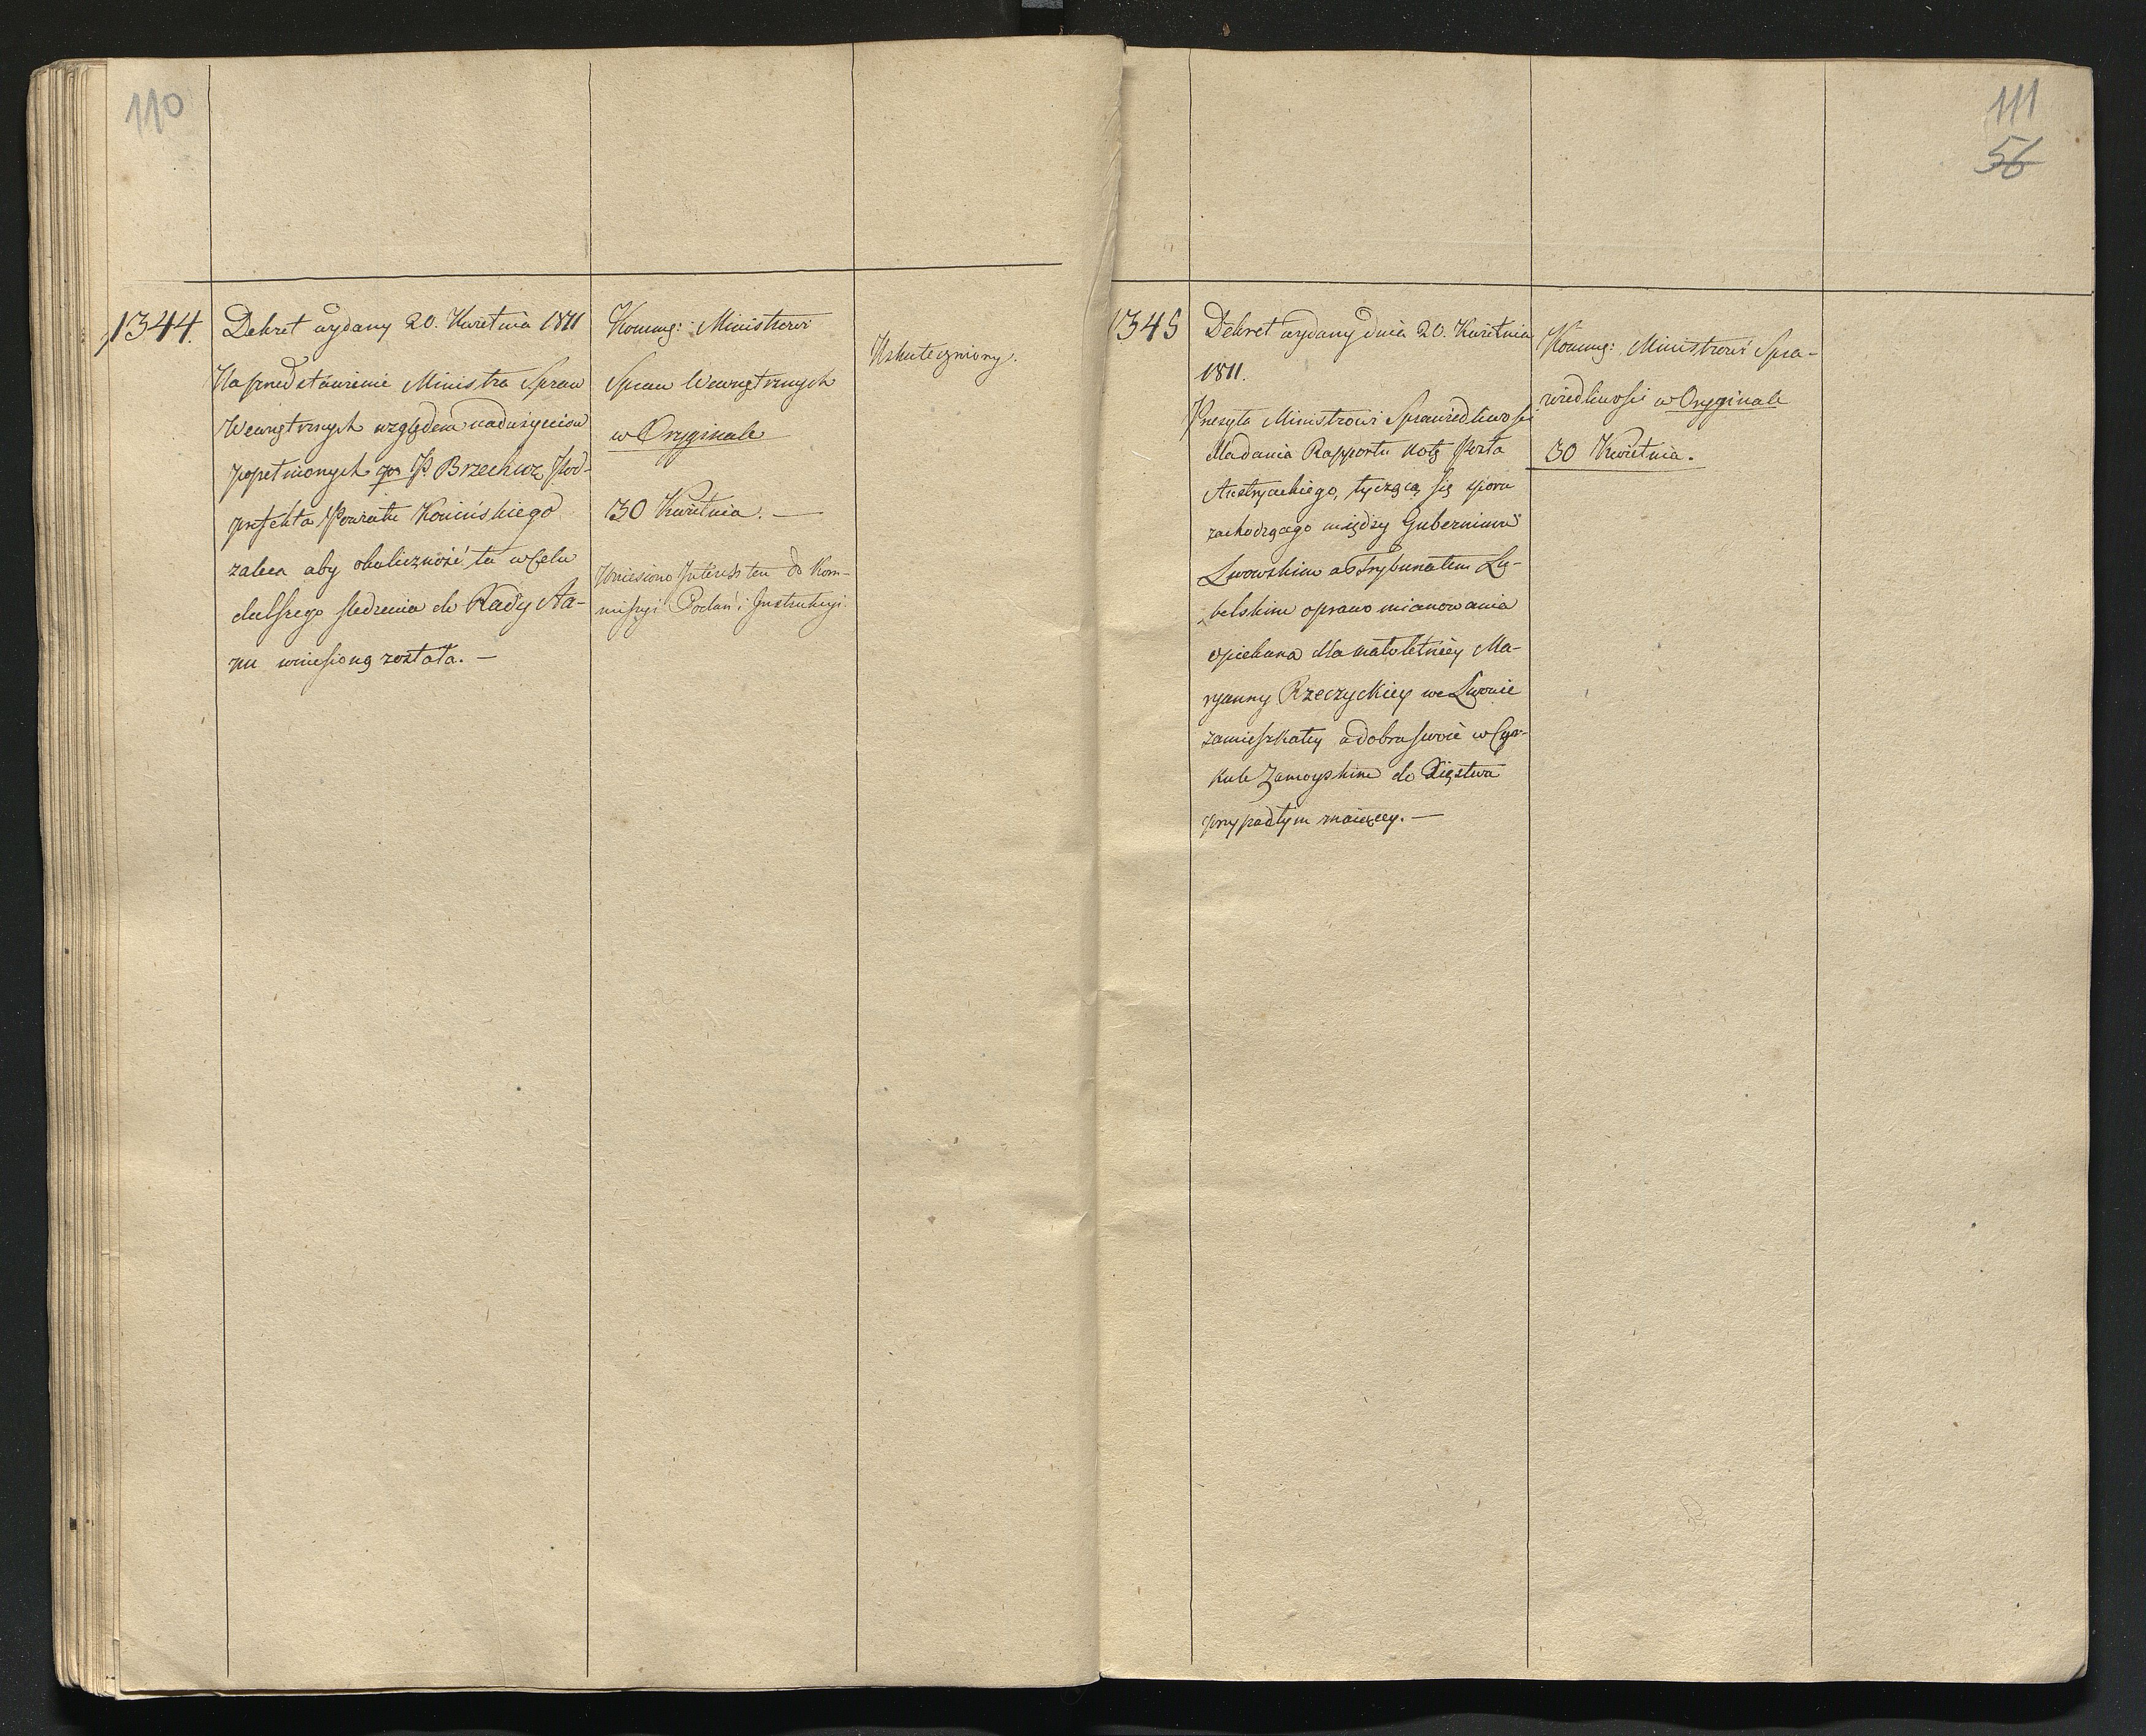 110
1344.
Dekret wydany 20. Kwietnia 1811
Na przedstawienie Ministra Spraw
Wewnętrznych względem nadużyciow
popełnionych prz P. Brzechwę Pod-
prefekta Powiatu Konińskiego
zaleca aby okoliczność ta w Celu
dalszego śledzenia do Rady Sta-
nu wniesioną została. —
Kommg: Ministrowi
Spraw Wewnętrznych
w Oryginale
30 Kwietnia. —
Wniesiono Interess ten do Kom-
missyi Podań i Instrukcyi
Uskuteczniony.
111
56
1345
Dekret wydany dnia 20. Kwietnia
1811.
Przesyła Ministrowi Sprawiedliwości
dla dania Rapportu notę Posła
Austryackiego, tyczącą się sporu
zachodzącego między Gubernium
Lwowskim a Trybunałem Lu-
belskim o prawo mianowania
opiekuna dla małoletniey Ma-
ryanny Rzeczyckiey we Lwowie
zamieszkałey a dobra swoie w Cyr-
kule Zamoyskim do Xięstwa
przypadłym maiącey. —
Kommg: Ministrowi Spra-
wiedliwości w Oryginale
30 Kwietnia.